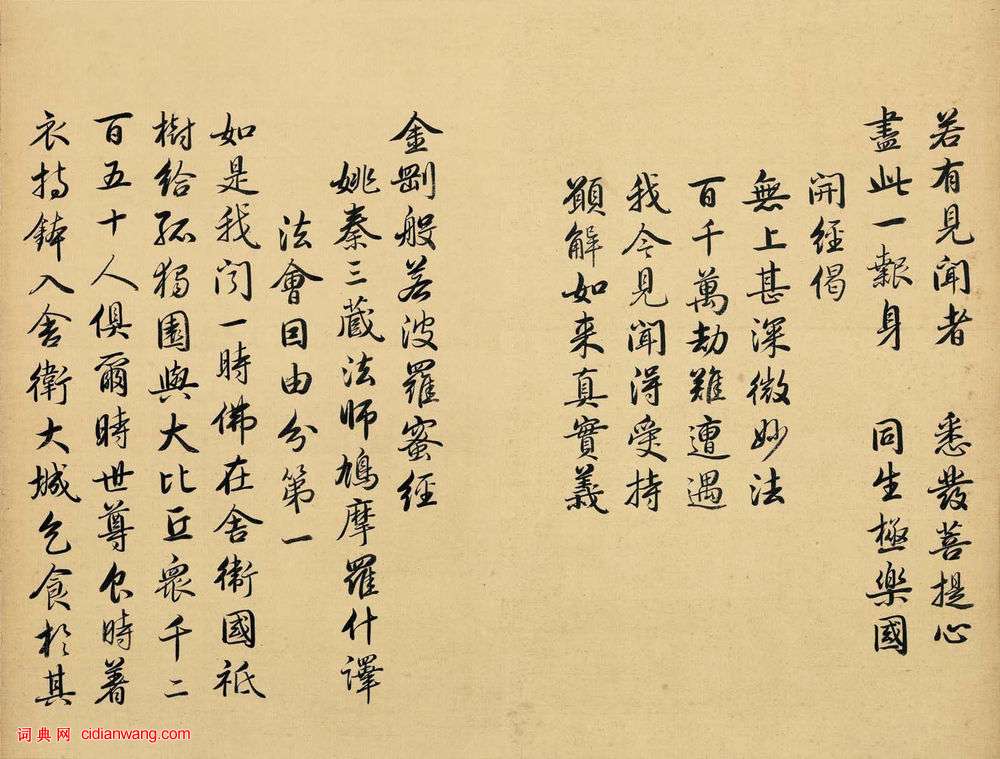 若有見聞者 悉發菩提心
盡此一報身 同生極樂國
開經偈
無上甚深微妙法
百千萬劫難遭遇
我今見聞得受持
願解如来真實義
金剛般若波羅蜜經
姚秦三藏法師鳩摩羅什譯
法會因由分第一
如是我聞一時佛在舍衛國祇
樹給孤獨園與大比丘衆千二
百五十人俱爾時世尊食時著
衣持鉢入舍衛大城乞食於其
词典网 cidianwang.com